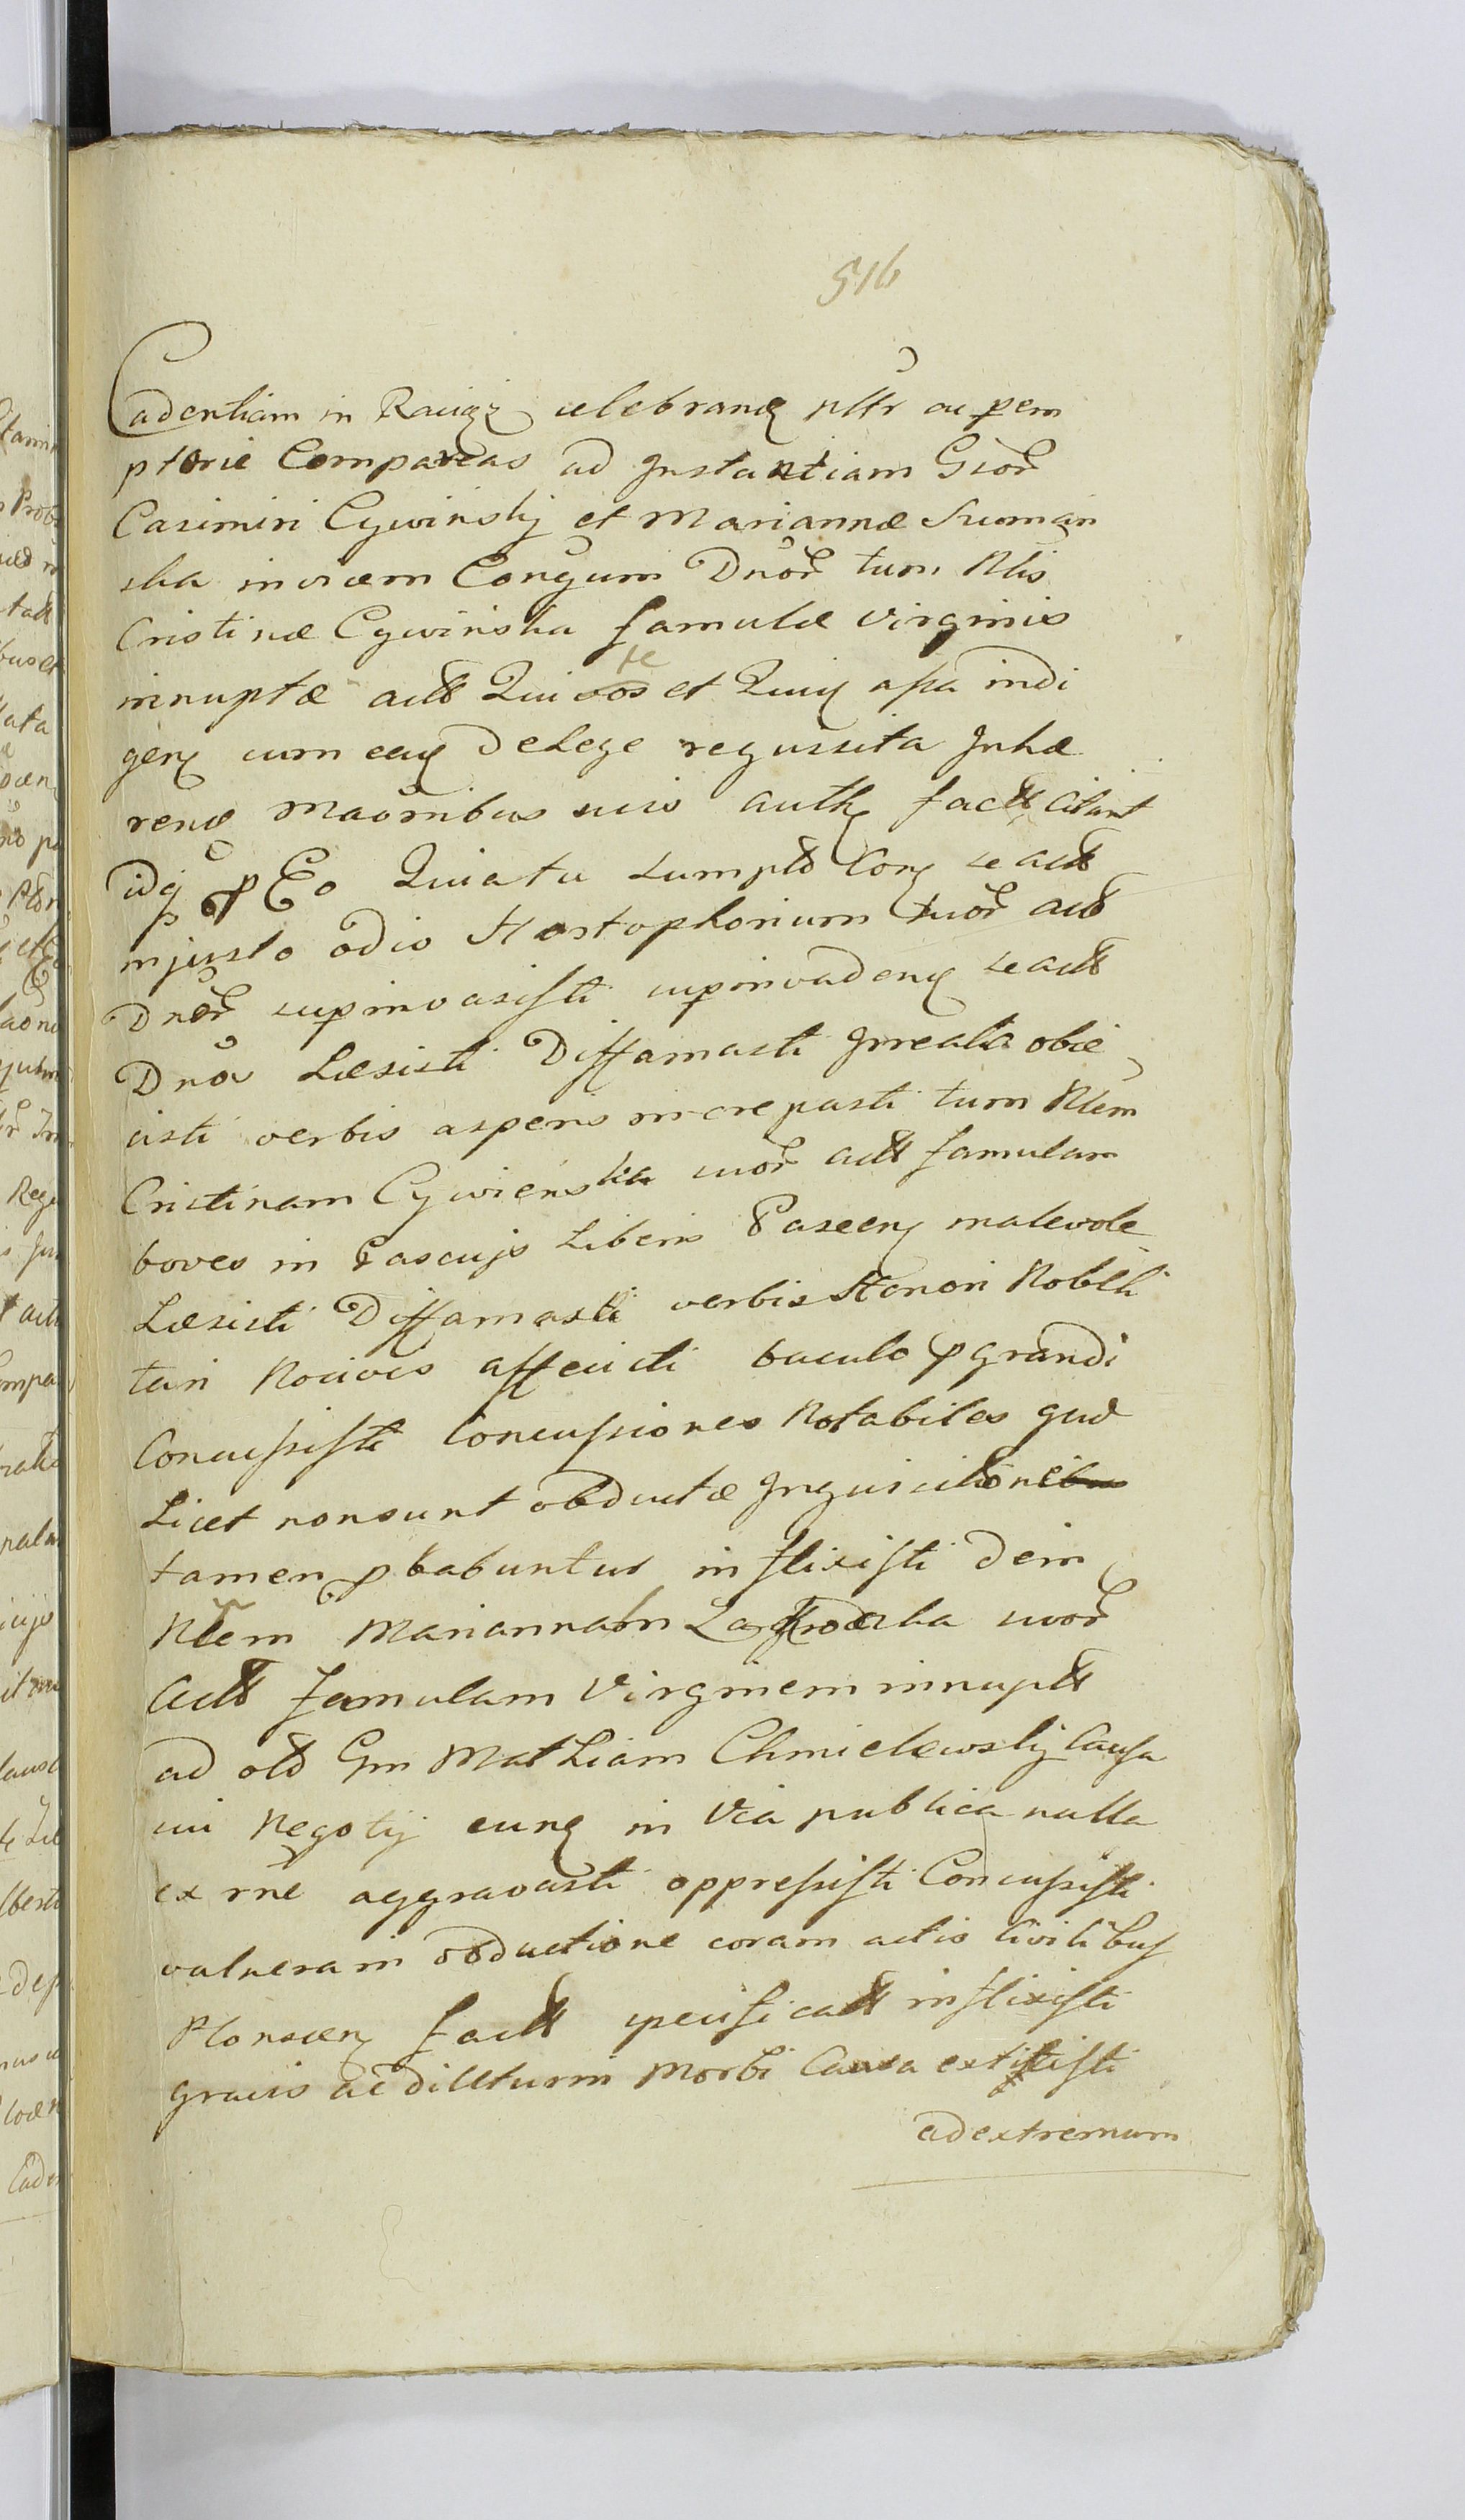 516
Cadentiam in Raciąz celebrand pltr ac perem
ptorie Compareas ad Instantiam Gsor
Casimiri Cywinskij et Mariannæ Suminin
ska invicem Conjgum Dnor tum Nlis
Cristinæ Cywinska famulæ Virginis
te
innuptæ actt Qui vos et Quiq apa indi
gen cum eaq de Lege requisita Inhæ
rend Maoribus suis auth fact Citant
idq p Eo Quia tu sumpto Cor se actt
injusto odio Hostophorium suor actt
Dnor supinvasisti supinvadend se actt
Dnos Læsisti Diffamasti Irrealia obie
cisti verbis asperis increpasti tum Nlem
Cristinam Cywienska suor actt famulam
boves in Pascujs Liberis Pascen malevole
Læsisti Diffamasti verbis Honori Nobili
tari Nocivis affecisti baculo pgrandi
Concussisti Concussiones Notabiles quæ
Licet non sunt obductæ Inquisitioneibus
tamen pbabuntur inflixisti dein
Nlem Mariannam suor
actt famulam Virginem innupta
ad old Gm Mathiam Chmielewskij Causa
sui Negotij eund in Via publica nulla
ex rne aggravasti oppressisti Concussisti
vulnera in obductione coram actis Civilibus
Plonscen factt specificatt inflixisti
gravis ac diuturni Morbi Causa extitisti
ad extremum